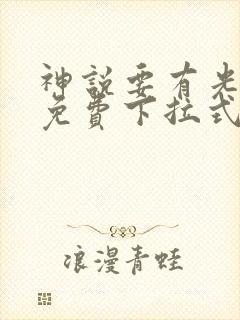 神說要有光
免費下拉式
浪漫青蛙